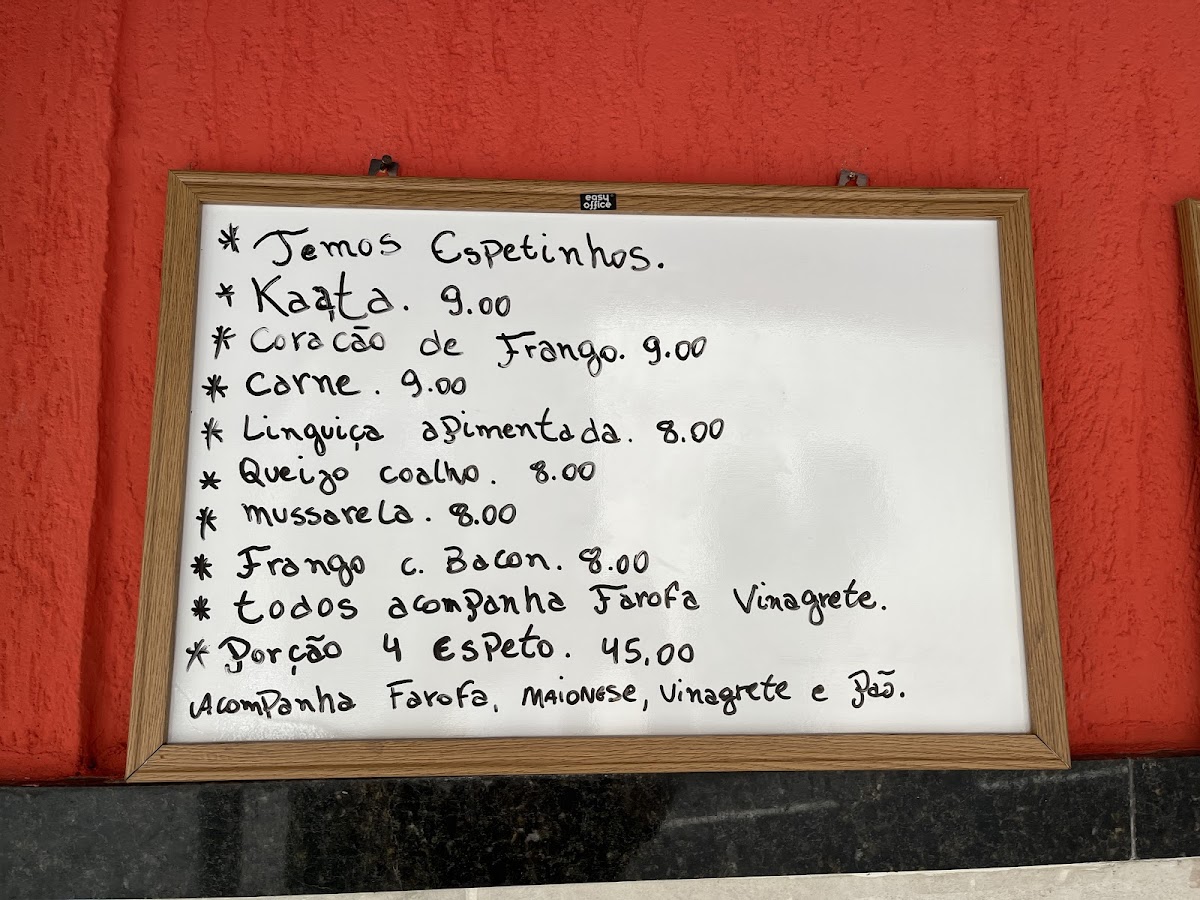 easy office
* Temos Espetinhos.
* Kaata. 9.00
* Coracão de Frango. 9.00
* Carne. 9.00
* Linguiça apimentada. 8.00
* Queijo coalho. 8.00
* mussarela. 8.00
* Frango c. Bacon. 8.00
* todos acompanha Farofa Vinagrete.
* Porção 4 Espeto. 45,00
Acompanha Farofa, MAIONESE, Vinagrete e Paõ.